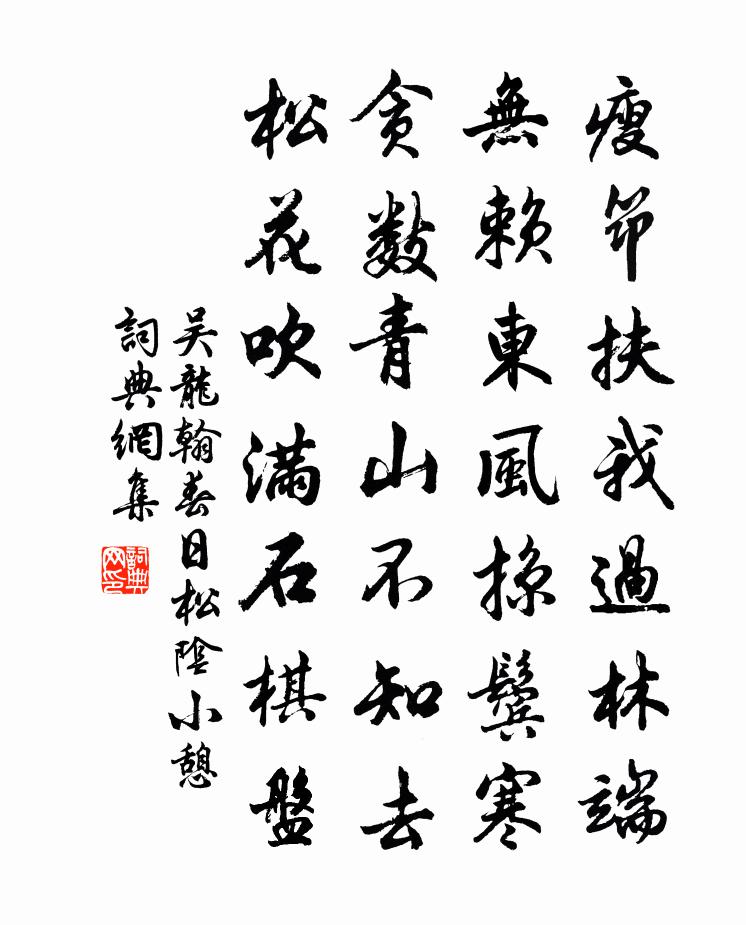 瘦筇扶我過林端
無賴東風掠鬢寒
貪數青山不知去
松花吹满石棋盤
吴龍翰春日松陰小憩
詞典網集
詞典网印